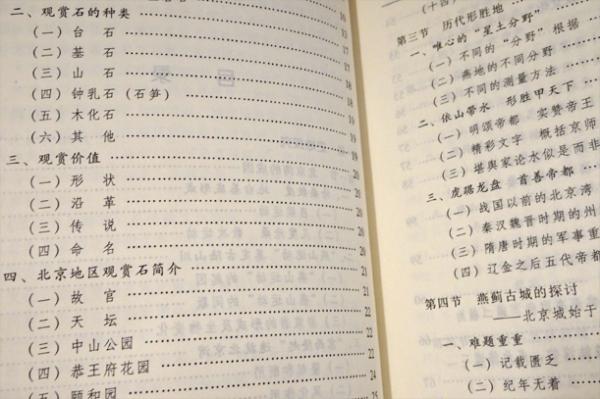 二、观赏石的种类 …… 16
（一）台　石 …… 16
（二）基　石 …… 17
（三）山　石 …… 18
（四）钟乳石（石笋） …… 18
（五）木化石 …… 19
（六）其　他 …… 19
三、观赏价值 …… 20
（一）形　状 …… 20
（二）沿　革 …… 20
（三）传　说 …… 20
（四）命　名 …… 20
四、北京地区观赏石简介 …… 21
（一）故　宫 …… 21
（二）天　坛 …… 22
（三）中山公园 …… 22
（四）恭王府花园 …… 24
（五）颐和园 …… 25
（十四）
第三节　历代形胜地
一、唯心的“星土分野”
（一）不同的“分野”根据
（二）燕地的不同分野
（三）不同的测量方法
二、依山带水　形胜甲天下
（一）明颂帝都　实赞帝王
（二）精彩文字　概括京师
（三）堪舆家论水似是而非
三、虎踞龙盘　首善帝都
（一）战国以前的北京湾
（二）秦汉魏晋时期的州
（三）隋唐时期的军事重
（四）辽金之后五代帝都
第四节　燕蓟古城的探讨
——北京城始于
一、难题重重
（一）记载匮乏
（二）纪年无着